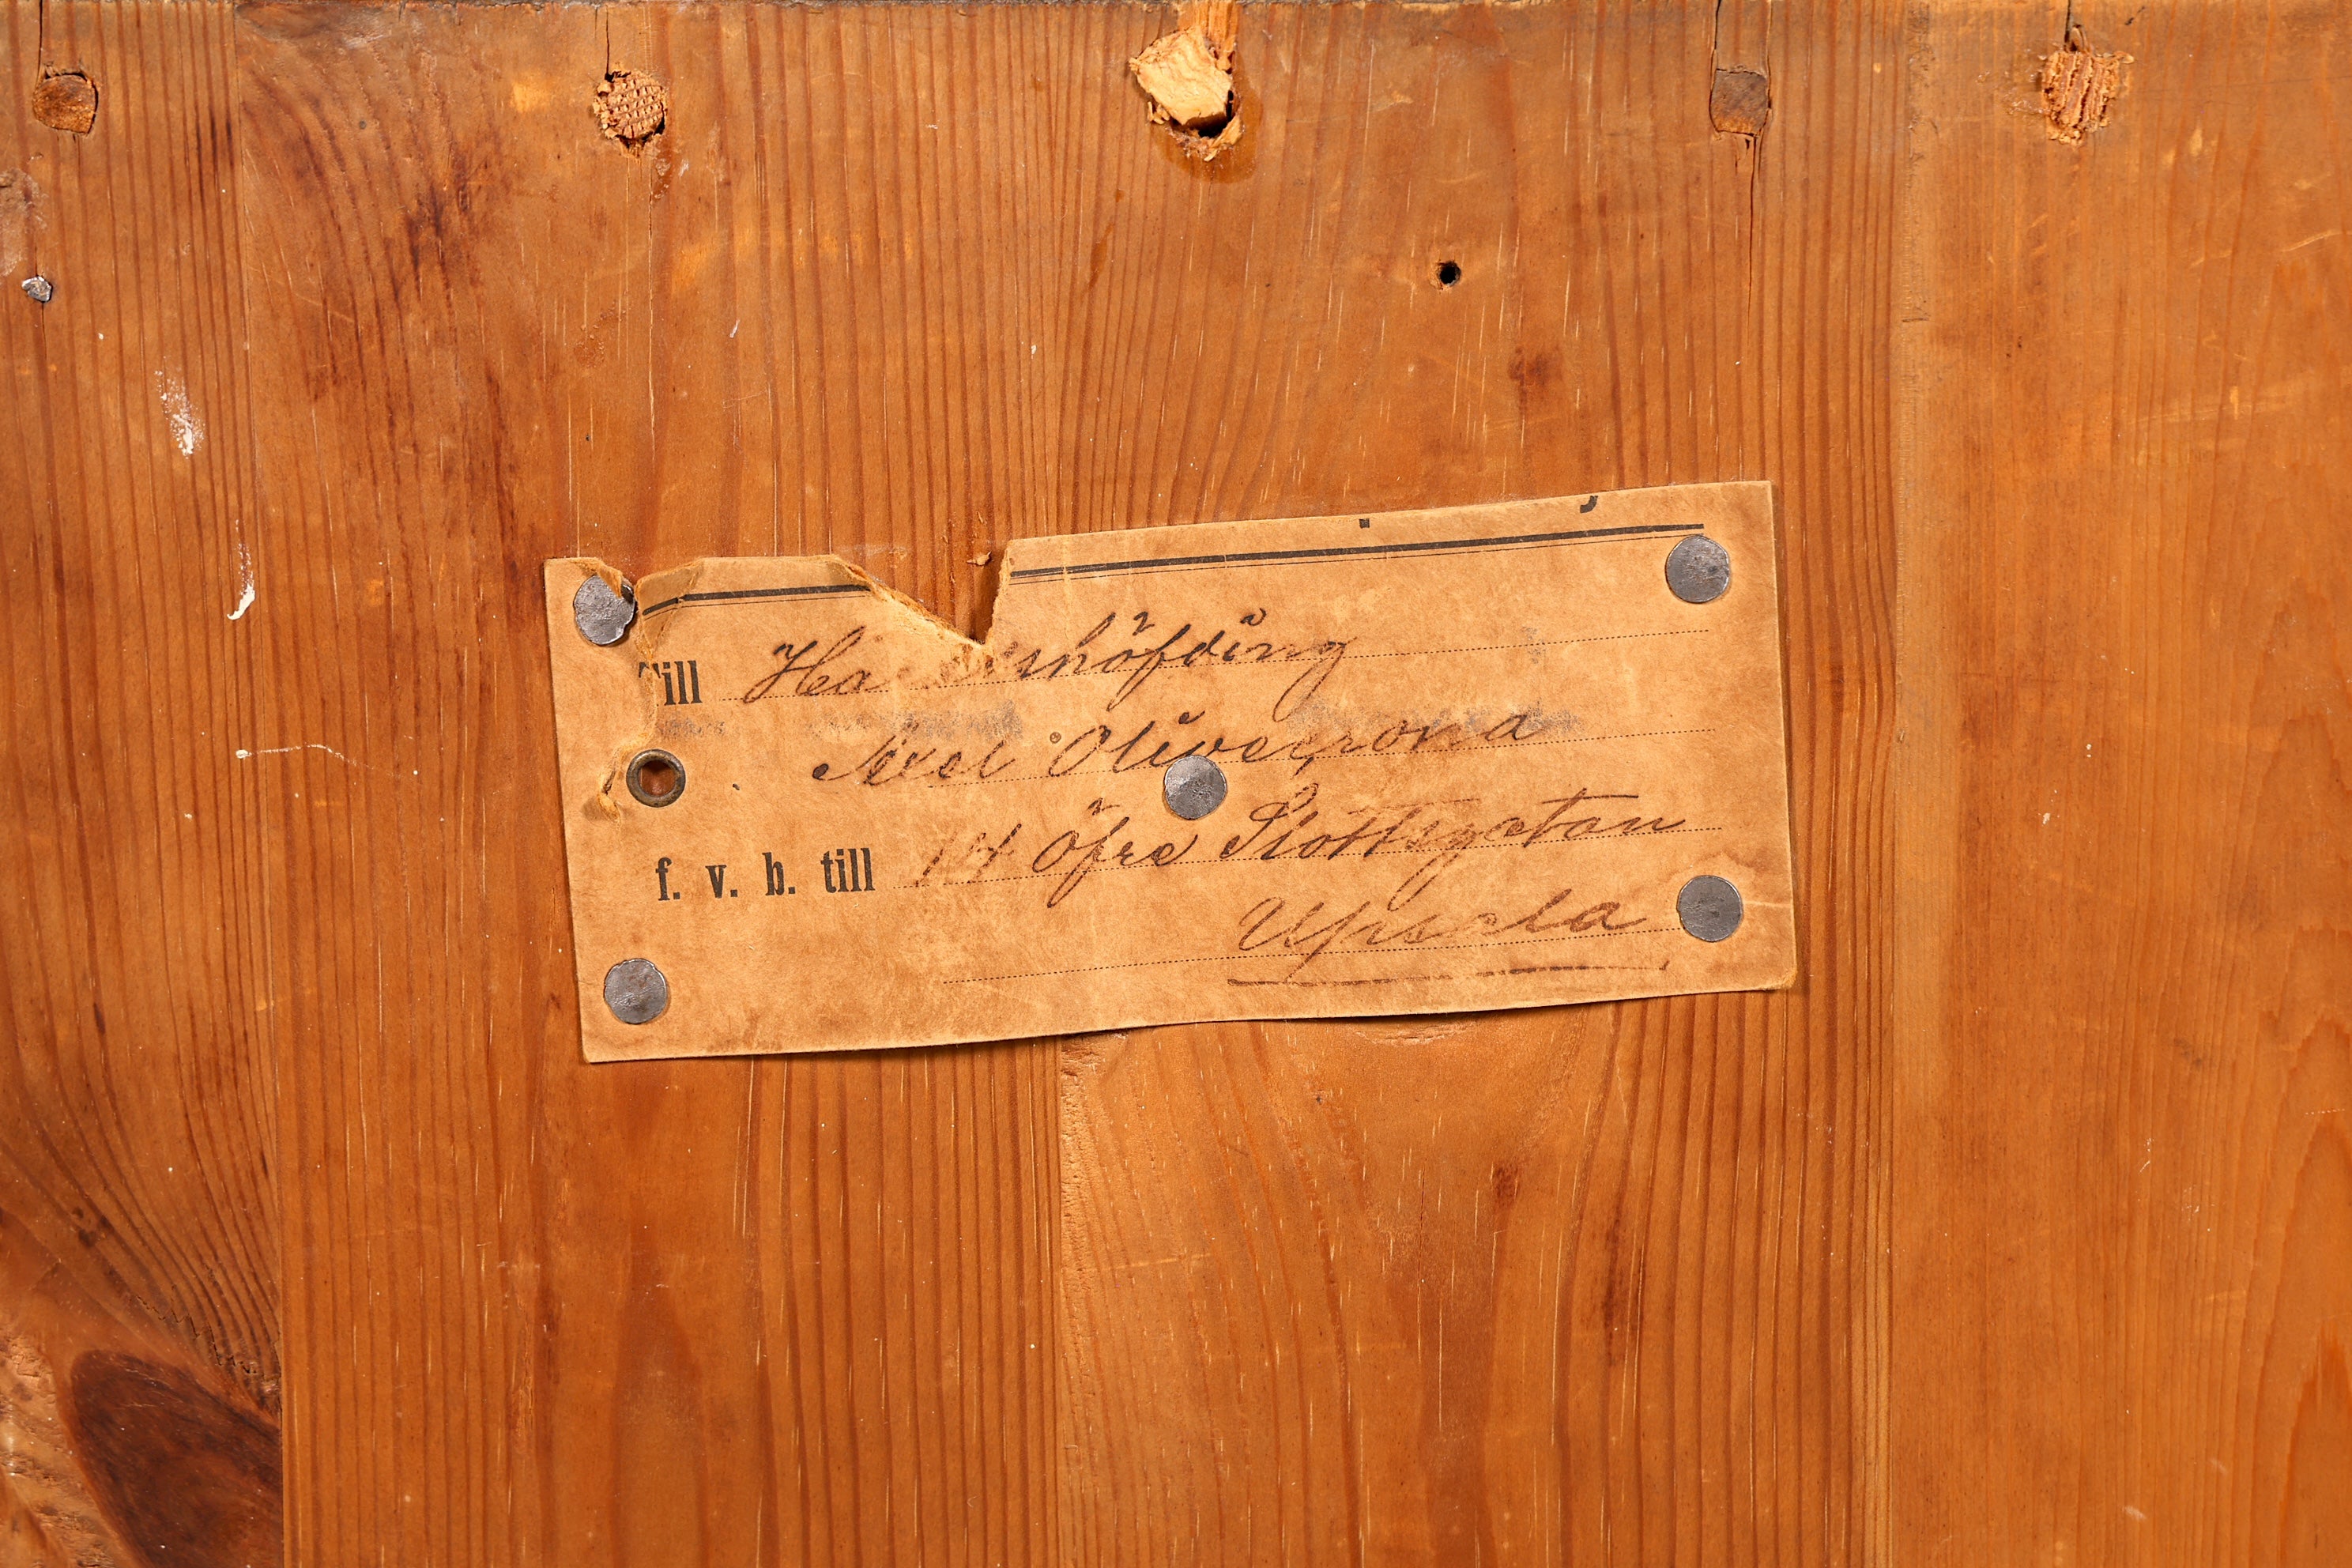 Till Ha shöfding
Axel Olivecrona
f. v. b. till 14 Öfre Slottsgatan
Upsala